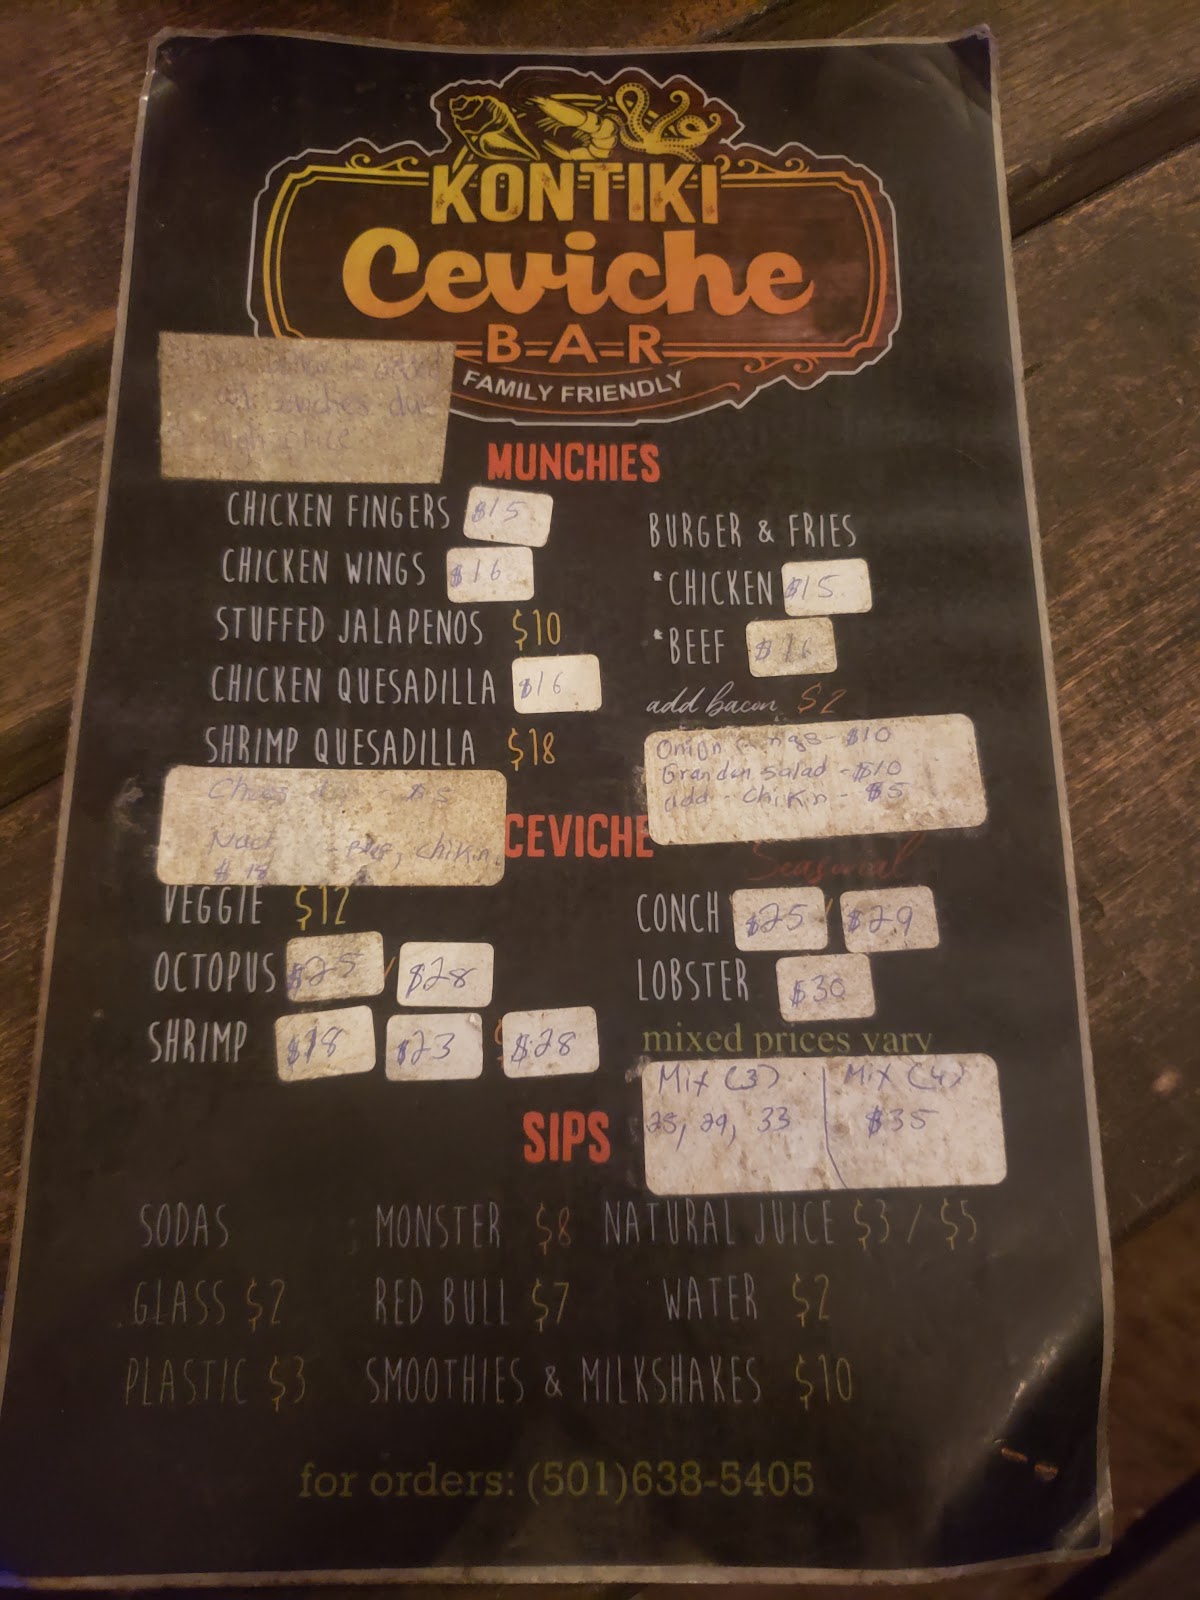 KONTIKI
Ceviche
BAR
FAMILY FRIENDLY
MUNCHIES
CHICKEN FINGERS $15
CHICKEN WINGS $16
STUFFED JALAPENOS $10
CHICKEN QUESADILLA $16
SHRIMP QUESADILLA $18
$5
chikin
$18
BURGER & FRIES
*CHICKEN $15
*BEEF $16
add bacon $2
Onion - $10
Granden Salad - $10
add - chikin - $5
CEVICHE
Seasonal
VEGGIE $12
OCTOPUS $25 / $28
SHRIMP $18 $23 $28
CONCH $25 / $29
LOBSTER $30
mixed prices vary
Mix (3) | Mix (4)
25, 29, 33 | $35
SIPS
SODAS
GLASS $2
PLASTIC $3
MONSTER $8
RED BULL $7
NATURAL JUICE $3 / $5
WATER $2
SMOOTHIES & MILKSHAKES $10
for orders: (501)638-5405